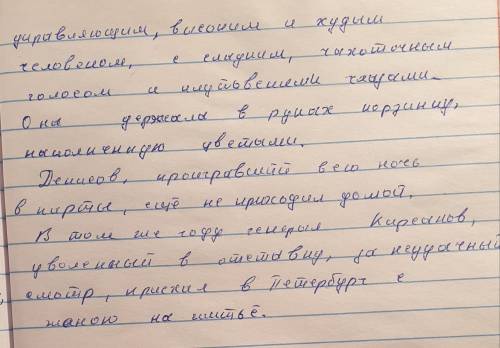 управляющим, высоким и худым
человеком, с сладким, чахоточным
голосом и плутовскими глазами.
Она держала в руках корзинку,
наполненную цветами.
Денисов, проигравший всю ночь
в карты, ещё не приходил домой.
В том же году генерал Кирсанов,
уволеный в отставку, за неудачный
смотр, приехал в Петербург с
жаною на житьё.